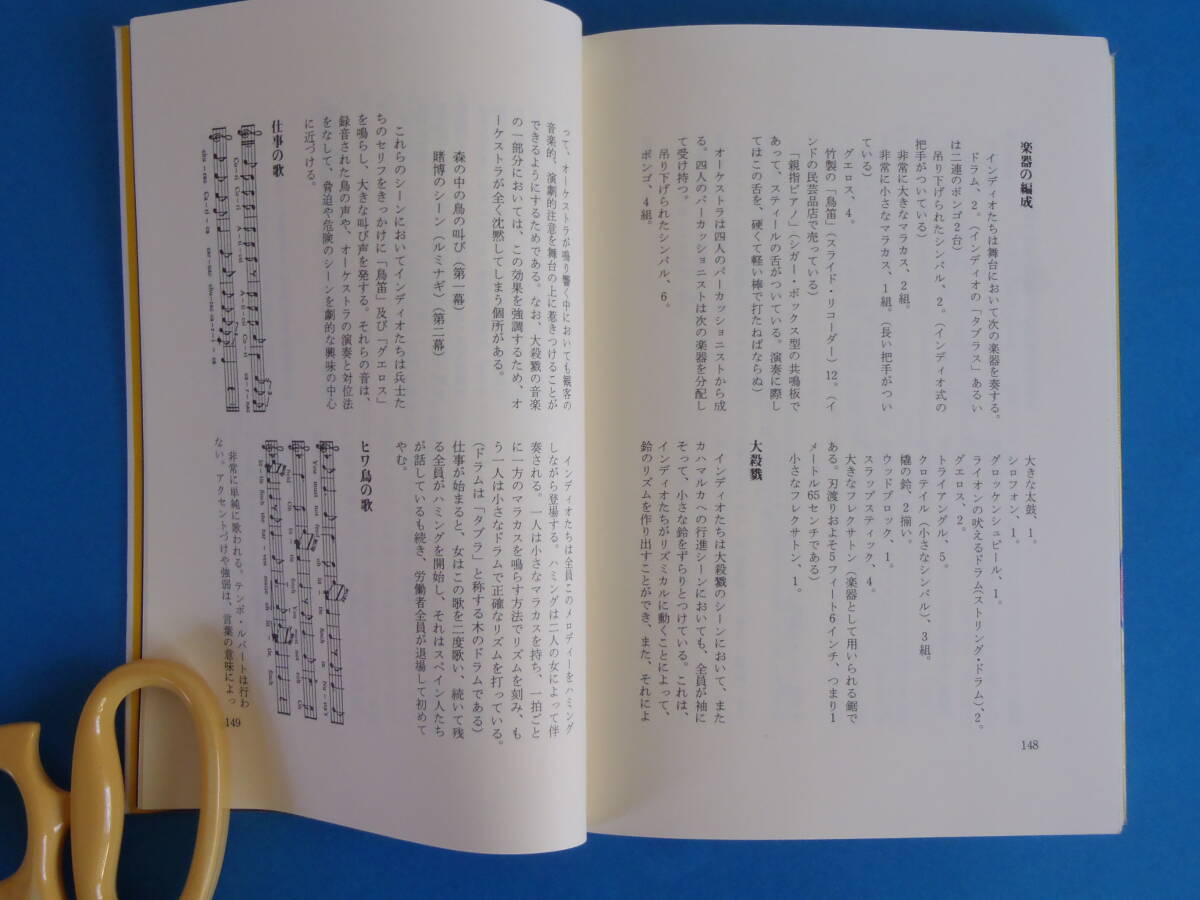 楽器の編成
インディオたちは舞台において次の楽器を奏する。
ドラム、2。（インディオの「タブラス」あるい
は二連のボンゴ2台）
吊り下げられたシンバル、2。（インディオ式の
把手がついている）
非常に大きなマラカス、2組。
非常に小さなマラカス、1組。（長い把手がつい
ている）
グエロス、4。
竹製の「鳥笛」（スライド・リコーダー）12。（イ
ンドの民芸品店で売っている）
「親指ピアノ」（シガー・ボックス型の共鳴板で
あって、スティールの舌がついている。演奏に際し
てはこの舌を、硬くて軽い棒で打たねばならぬ）
オーケストラは四人のパーカッショニストから成
る。四人のパーカッショニストは次の楽器を分配し
て受け持つ。
吊り下げられたシンバル、6。
ボンゴ、4組。
大きな太鼓、1。
シロフォン、1。
グロッケンシュピール、1。
ライオンの吠えるドラム（ストリング・ドラム）、2。
グエロス、2。
トライアングル、5。
クロテイル（小さなシンバル）、3組。
橇の鈴、2揃い。
ウッドブロック、1。
スラップスティック、4。
大きなフレクサトン（楽器として用いられる鋸で
ある。刃渡りおよそ5フィート6インチ、つまり1
メートル65センチである）
小さなフレクサトン、1。
大殺戮
インディオたちは大殺戮のシーンにおいて、また
カハマルカへの行進シーンにおいても、全員が袖に
そって、小さな鈴をずらりとつけている。これは、
インディオたちがリズミカルに動くことによって、
鈴のリズムを作り出すことができ、また、それによ
148
って、オーケストラが鳴り響く中においても観客の
音楽的、演劇的注意を舞台の上に惹きつけることが
できるようにするためである。なお、大殺戮の音楽
の一部分においては、この効果を強調するため、オ
ーケストラが全く沈黙してしまう個所がある。
森の中の鳥の叫び（第一幕）
賭博のシーン（ルミナギ）（第二幕）
これらのシーンにおいてインディオたちは兵士た
ちのセリフをきっかけに「鳥笛」及び「グエロス」
を鳴らし、大きな叫び声を発する。それらの音は、
録音された鳥の声や、オーケストラの演奏と対位法
をなして、脅迫や危険のシーンを劇的な興味の中心
に近づける。
仕事の歌
インディオたちは全員このメロディーをハミング
しながら登場する。ハミングは二人の女によって伴
奏される。一人は小さなマラカスを持ち、一拍ごと
に一方のマラカスを鳴らす方法でリズムを刻み、も
う一人は小さなドラムで正確なリズムを打っている。
（ドラムは「タブラ」と称する木のドラムである）
仕事が始まると、女はこの歌を二度歌い、続いて残
る全員がハミングを開始し、それはスペイン人たち
が話しているも続き、労働者全員が退場して初めて
やむ。
ヒワ鳥の歌
非常に単純に歌われる。テンポ・ルバートは行わ
ない。アクセントづけや強弱は、言葉の意味によっ
149